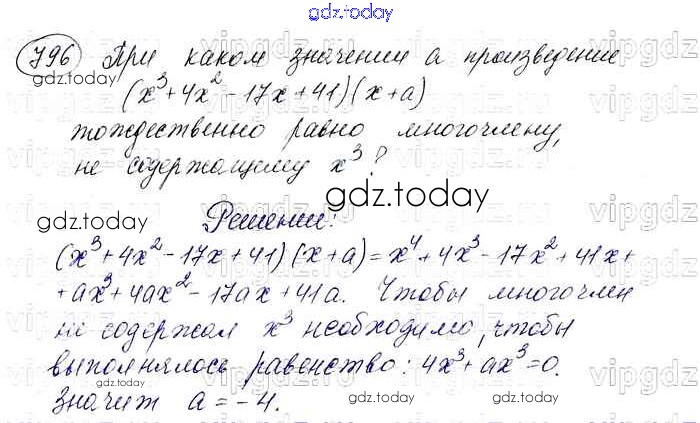 gdz.today
796 При каком значении а произведение
gdz.today
(x³+4x²-17x+41)(x+a)
тождественно равно многочлену,
не содержащему x³?
gdz.today
Решение:
(x³+4x²-17x+41)(x+a)=x⁴+4x³-17x²+41x+
+ax³+4ax²-17ax+41a. Чтобы многочлен
не содержал x³ необходимо, чтобы
выполнялось равенство: 4x³+ax³=0.
gdz.today
Значит a=-4.
gdz.today